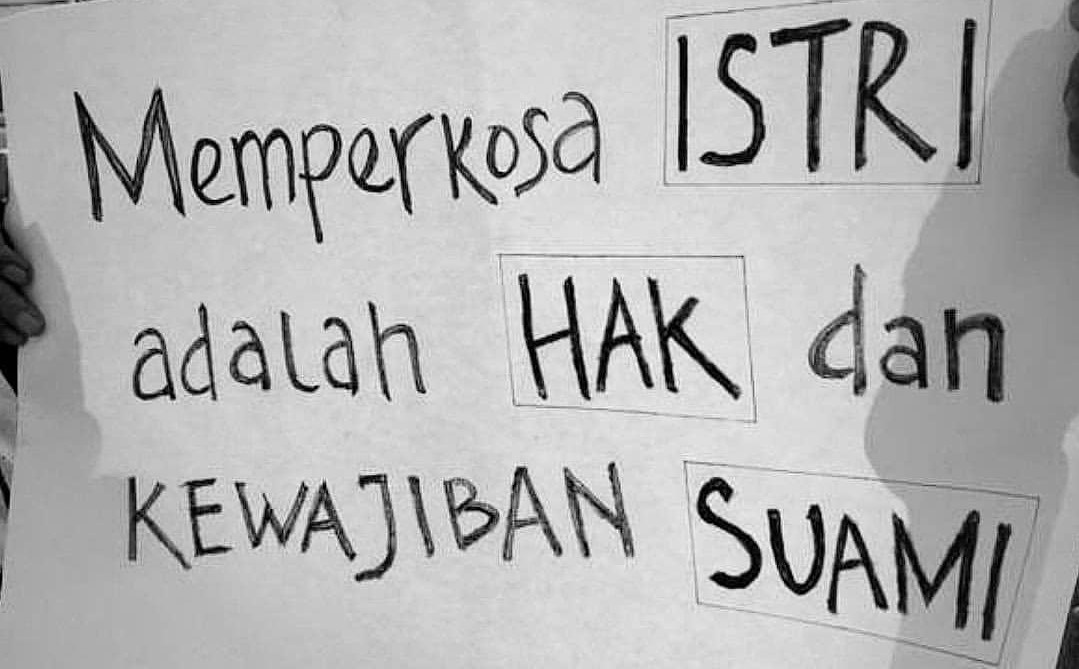 Memperkosa ISTRI
adalah HAK dan
KEWAJIBAN SUAMI